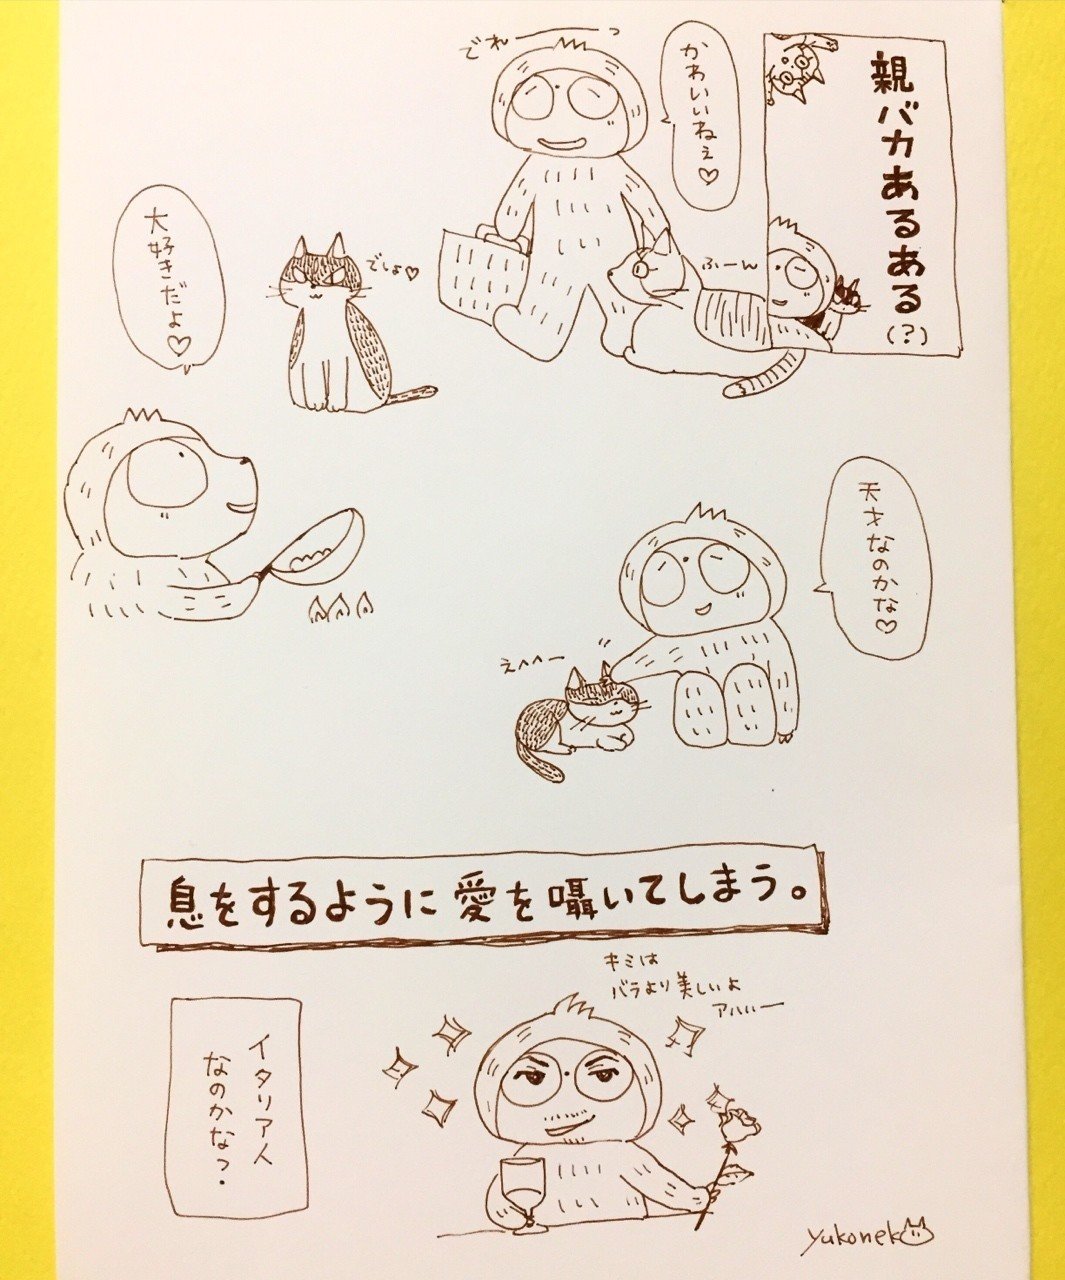 親バカあるある
(?)
かわいいねぇ♡
でれーっ
ふーん
でしょ♡
大好きだよ♡
天才なのかな♡
えへへー
息をするように愛を囁いてしまう。
キミは
バラより美しいよ
アハハー
イタリア人
なのかな?
yukoneko